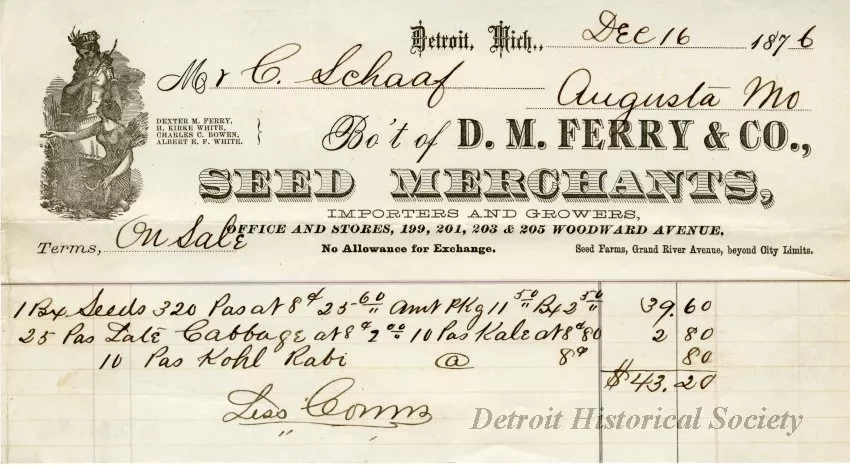 Detroit, Mich., Dec 16 1876
Mr C. Schaaf
Augusta Mo
DEXTER M. FERRY,
H. KIRKE WHITE,
CHARLES C. BOWEN,
ALBERT E. F. WHITE.
Bo't of D. M. FERRY & CO.,
SEED MERCHANTS,
IMPORTERS AND GROWERS,
OFFICE AND STORES, 199, 201, 203 & 205 WOODWARD AVENUE,
Terms, On Sale No Allowance for Exchange. Seed Farms, Grand River Avenue, beyond City Limits.
1 Bx Seeds 320 Pas at 8¢ 25 60 Amt Pkg 11 50 Bx 2 50 39.60
25 Pas Late Cabbage at 8¢ 2 00 10 Pas Kale at 8¢ 80 2 80
10 Pas Kohl Rabi @ 8¢ 80
$43.20
Less Comm
Detroit Historical Society